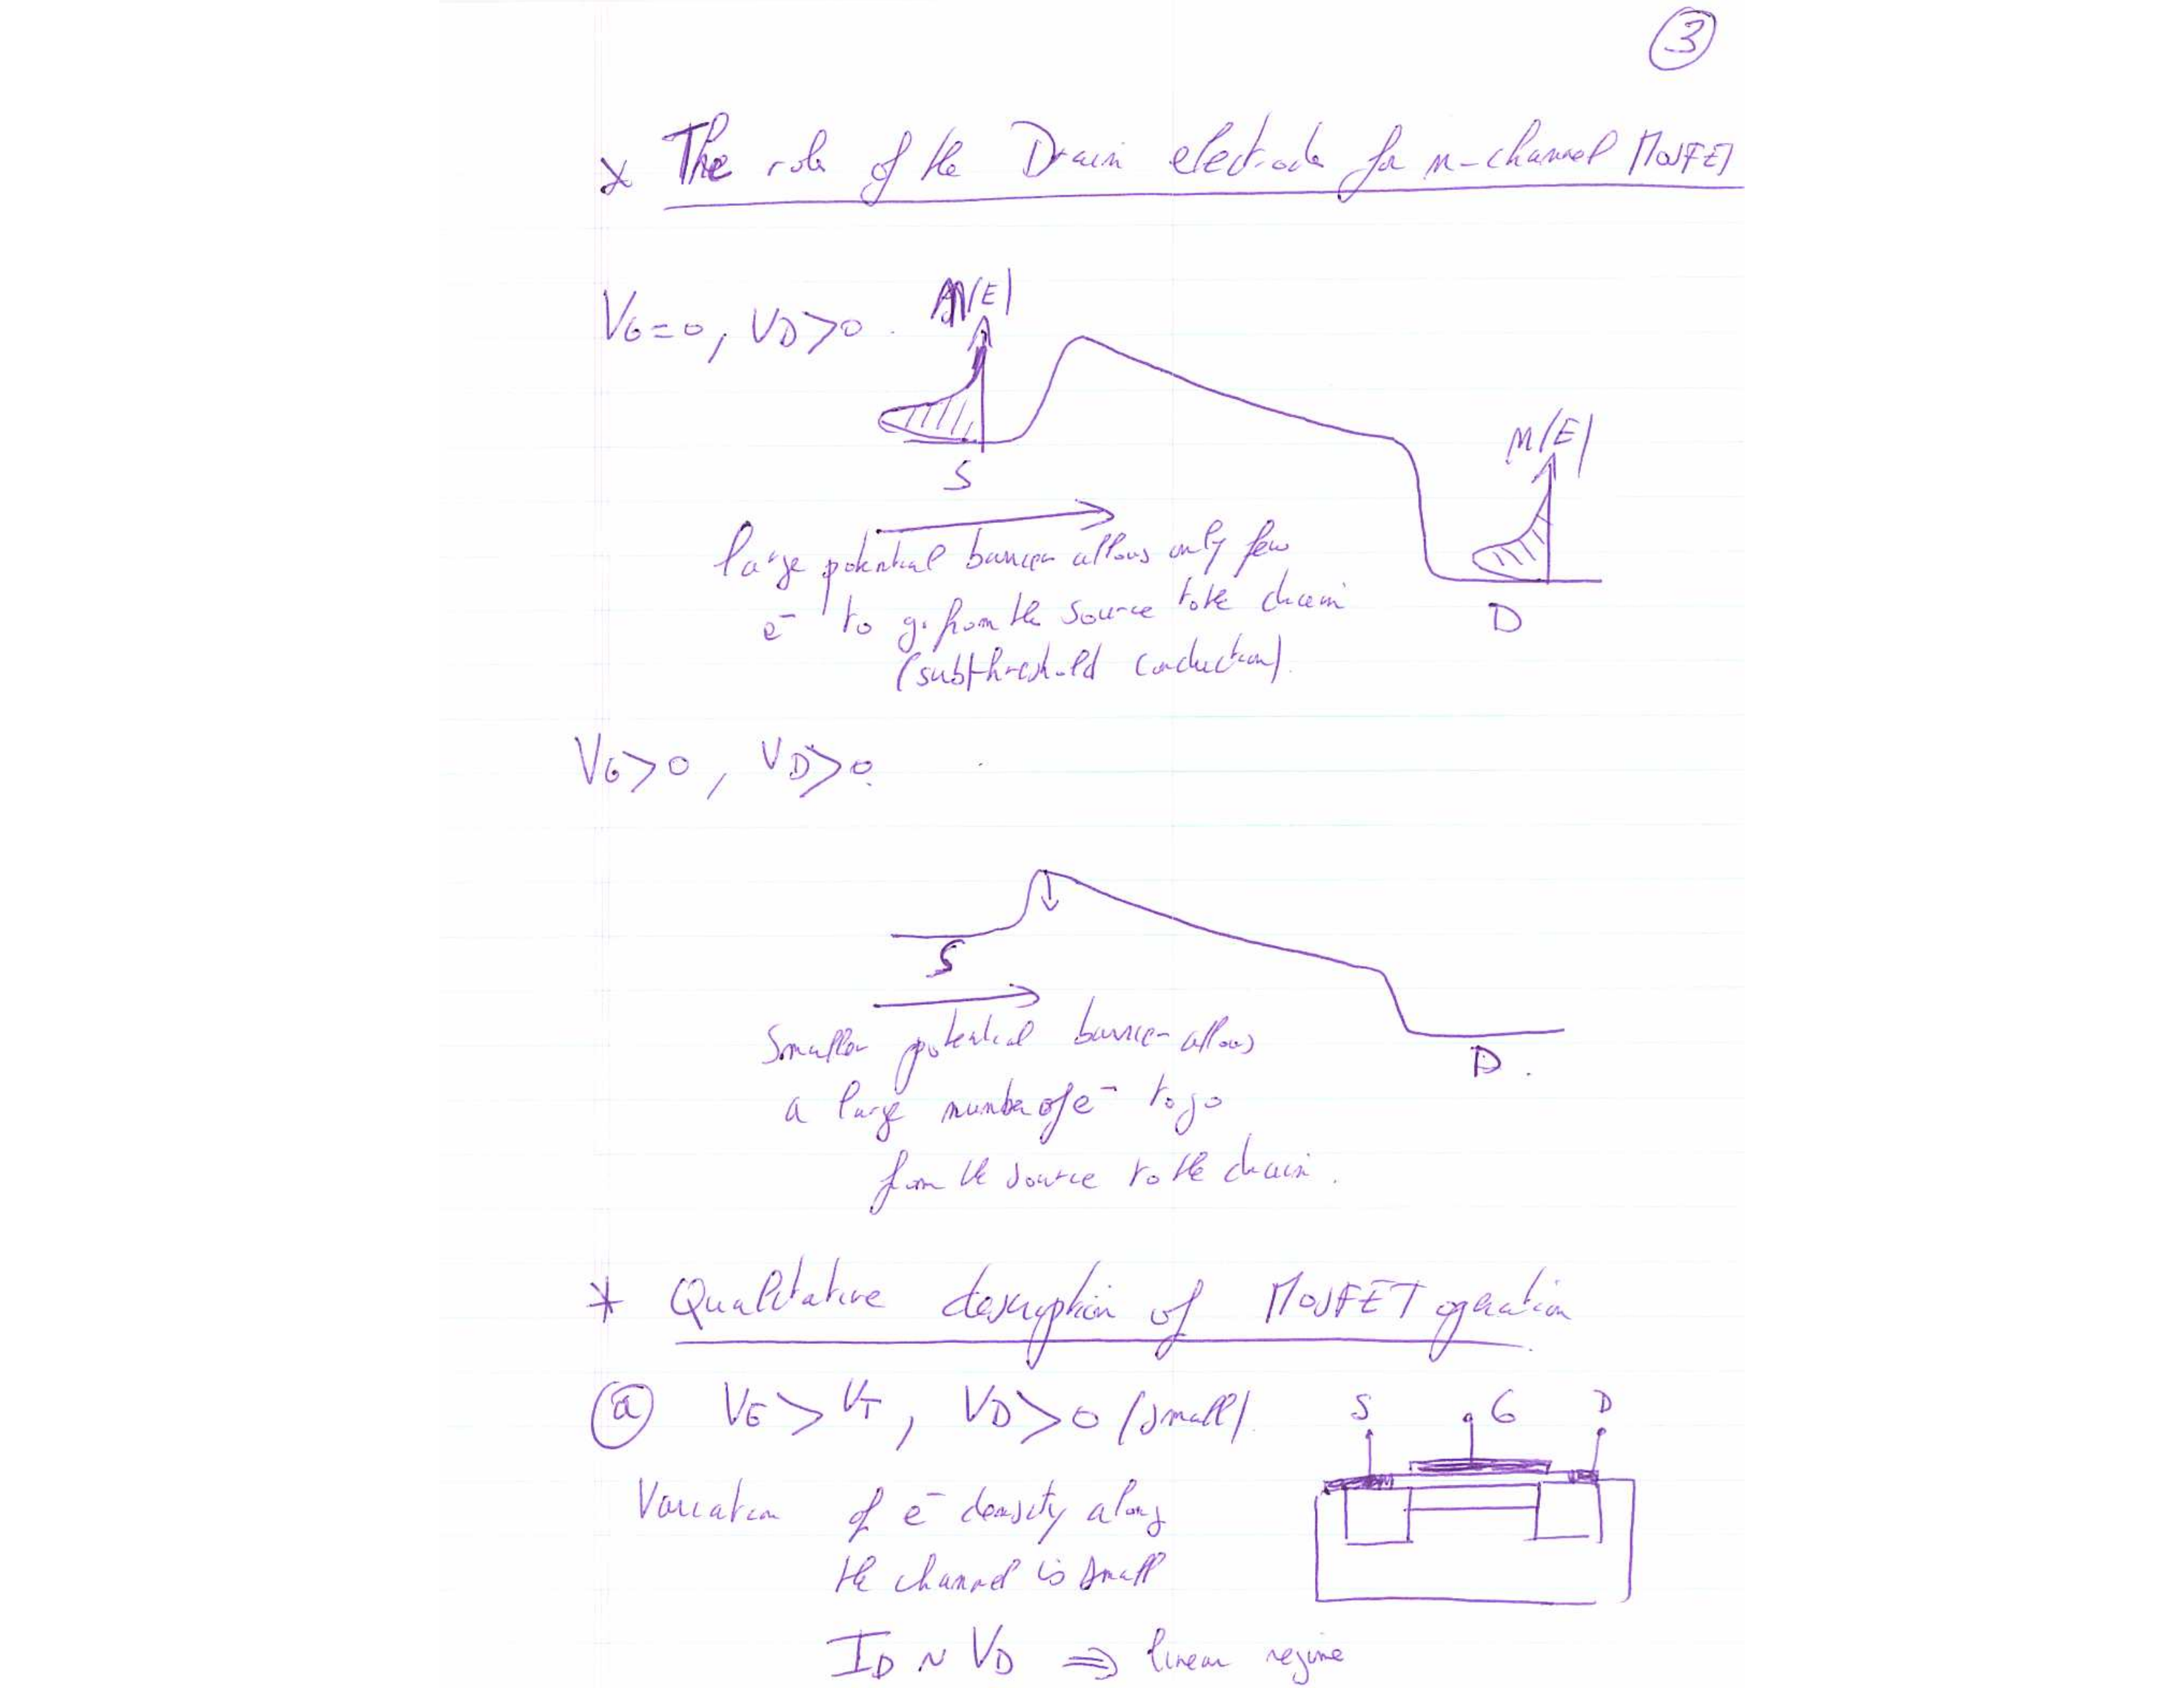 3
* The role of the Drain electrode for n-channel MOSFET
VG=0, VD>0.
n(E)
n(E)
S
D
large potential barrier allows only few
e⁻ to go from the source to the drain
(subthreshold conduction).
VG>0, VD>0.
S
D.
Smaller potential barrier allows
a large number of e⁻ to go
from the source to the drain.
* Qualitative description of MOSFET operation
(a) VG > VT, VD>0 (small).
S G D
Variation of e⁻ density along
the channel is small
ID ~ VD ⇒ linear regime